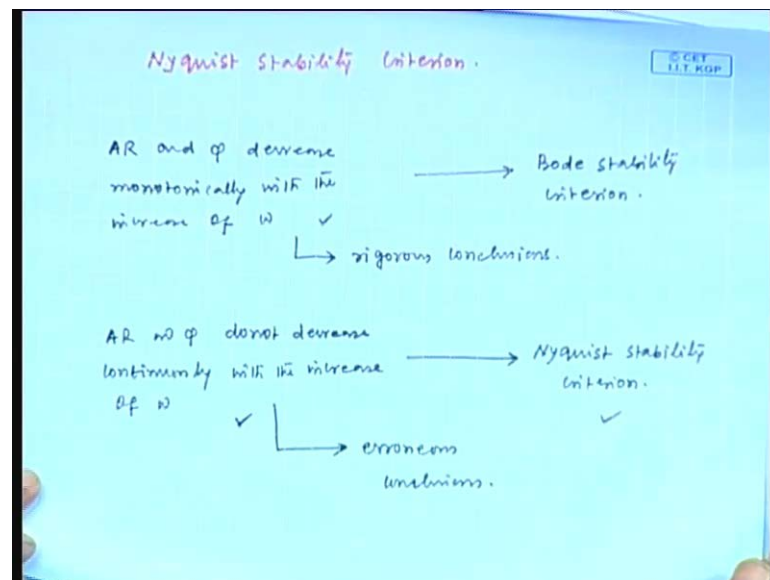 Nyquist Stability Criterion.
© CET
I.I.T. KGP
AR and φ decrease
monotonically with the
increase of ω ✓
→ Bode stability
criterion.
→ rigorous conclusions.
AR and φ donot decrease
continuously with the increase
of ω ✓
→ Nyquist stability
criterion. ✓
→ erroneous
conclusions.